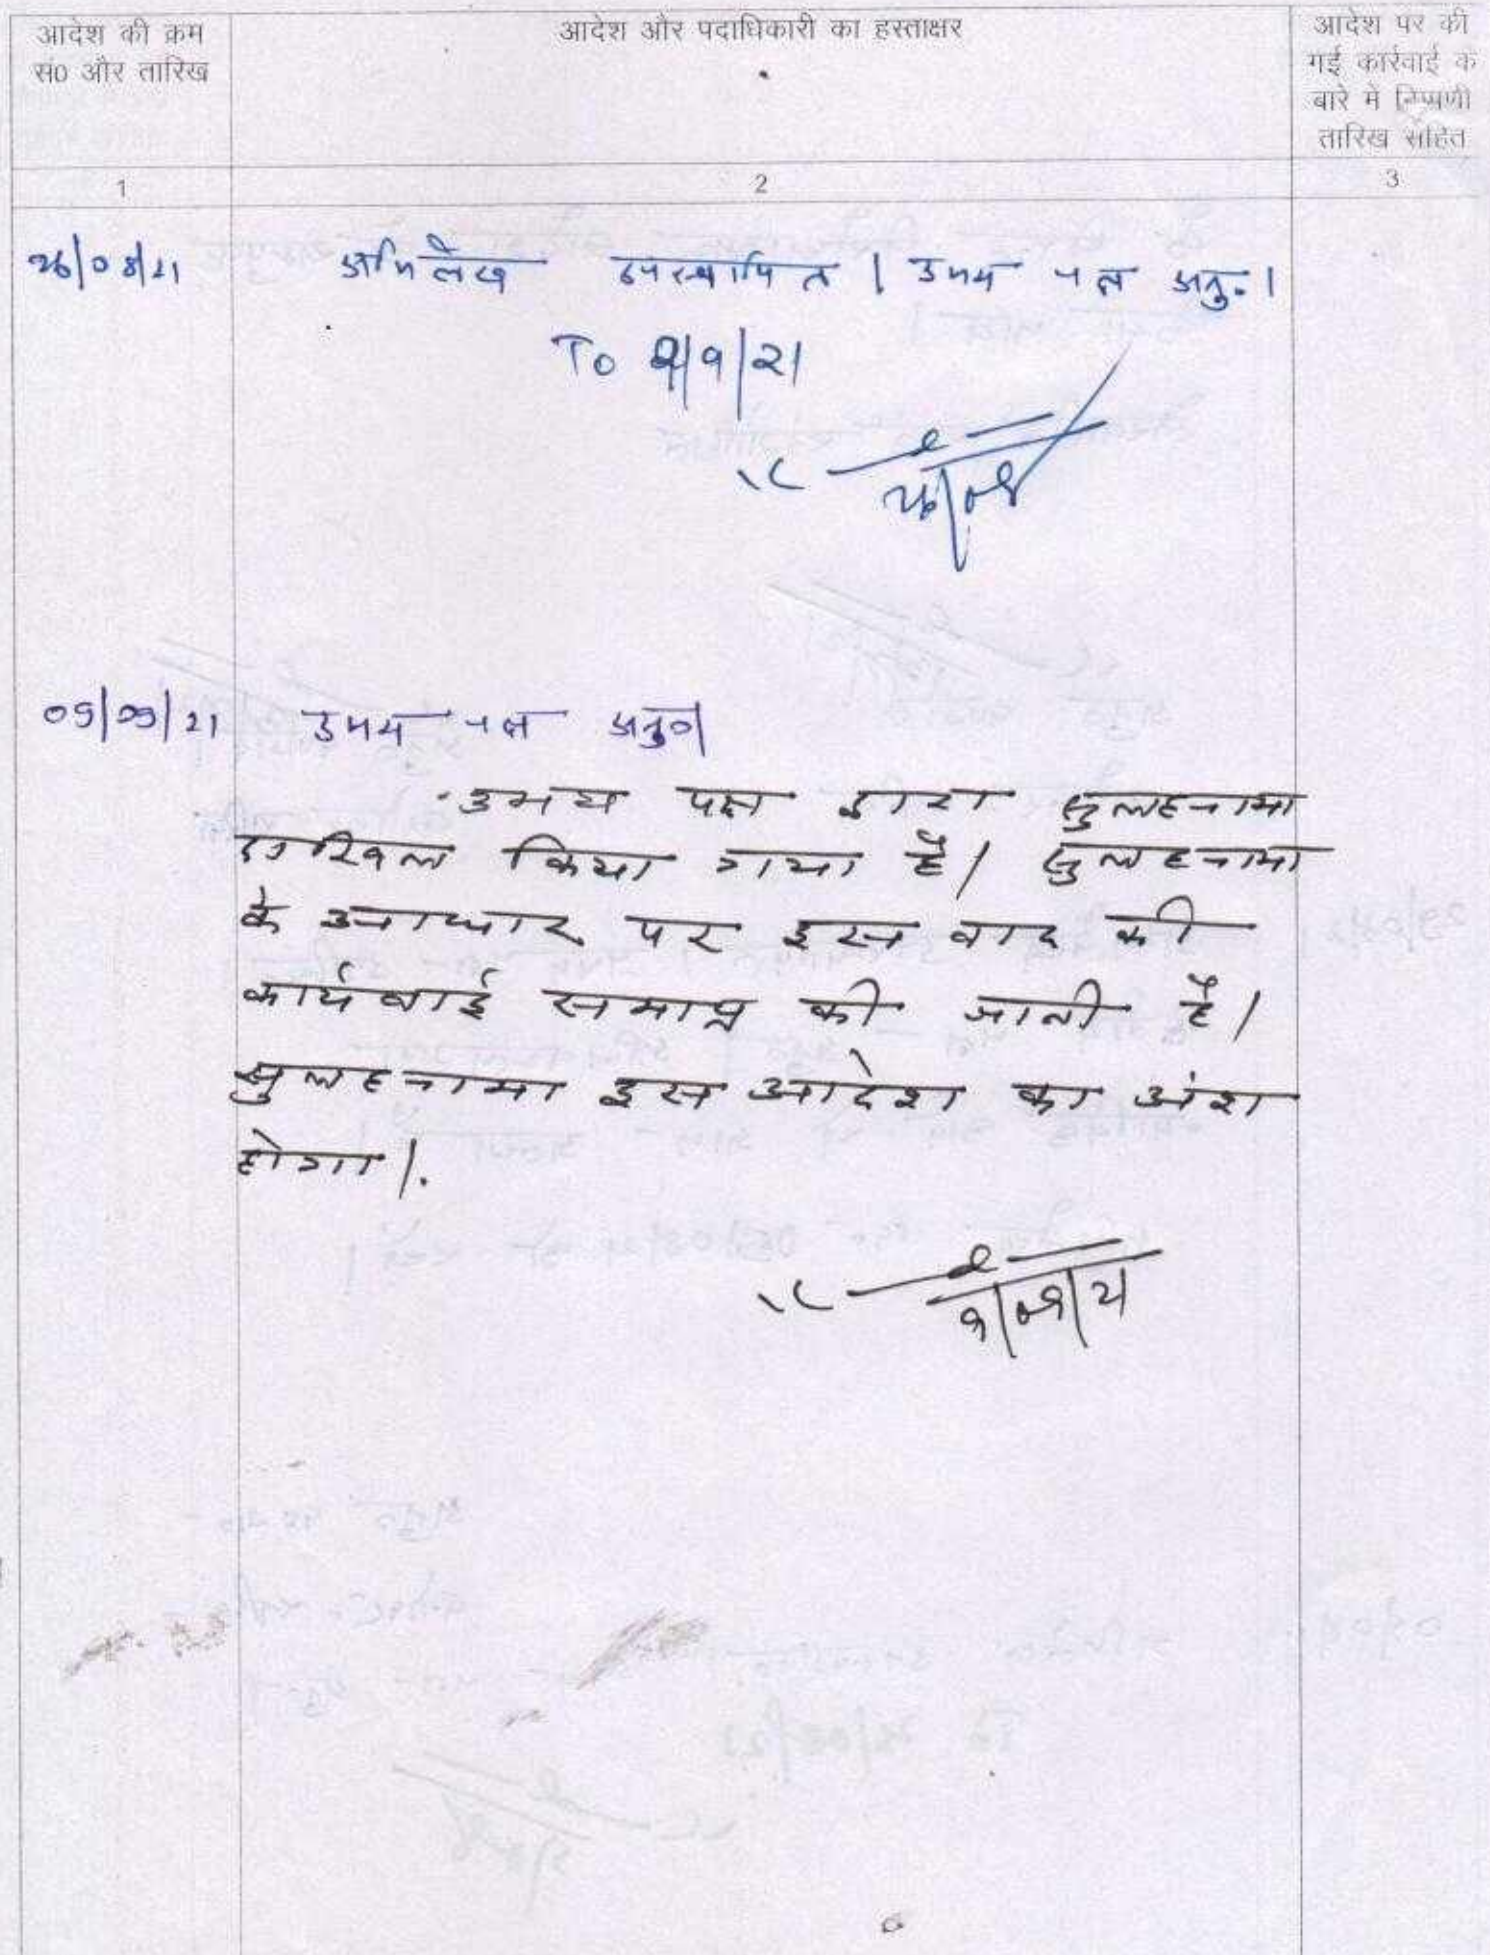 आदेश की क्रम
सं0 और तारिख
आदेश और पदाधिकारी का हस्ताक्षर
आदेश पर की
गई कार्रवाई क
बारे मे टिप्पणी
तारिख सहित
1
2
3
26/08/21
अभिलेख उपस्थापित । उभय पक्ष अनु. ।
To 9/9/21
26/08
09/09/21
उभय पक्ष अनु०।
उभय पक्ष द्वारा सुलहनामा
दाखिल किया गया है। सुलहनामा
के आधार पर इस वाद की
कार्यवाई समाप्त की जाती है।
सुलहनामा इस आदेश का अंश
होगा।.
9/09/21